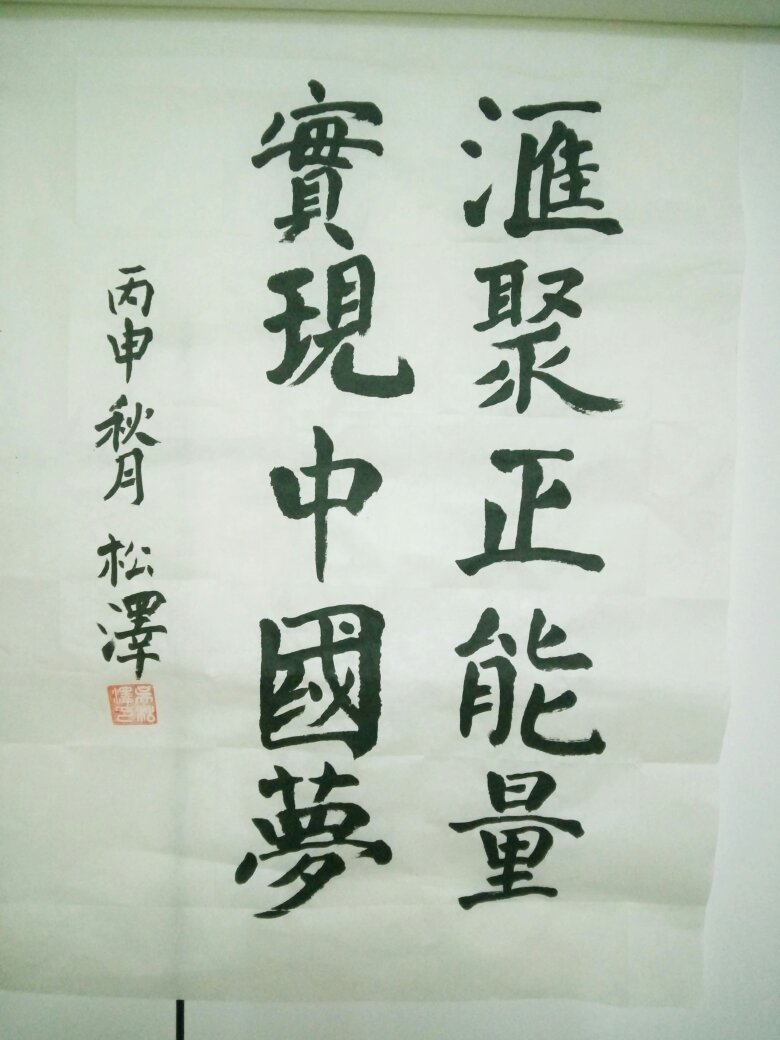 滙聚正能量
實現中國夢
丙申秋月 松澤